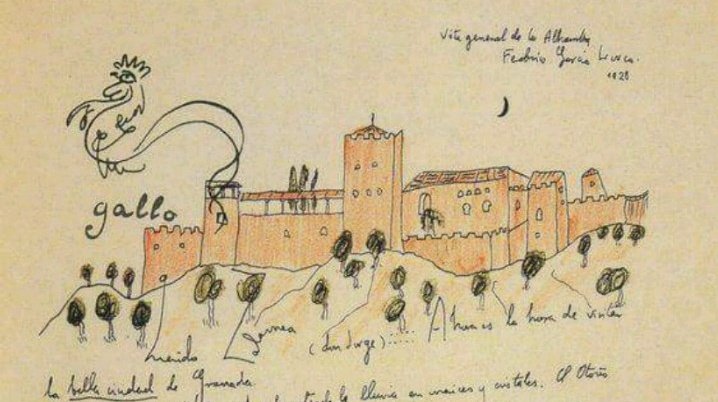 Vista general de la Alhambra
Federico García Lorca.
1928
gallo
Querido
(don Jorge) ..... Ahora es la hora de visitar
la bella ciudad de Granada.
la lluvia en maices y cristales. El Otoño